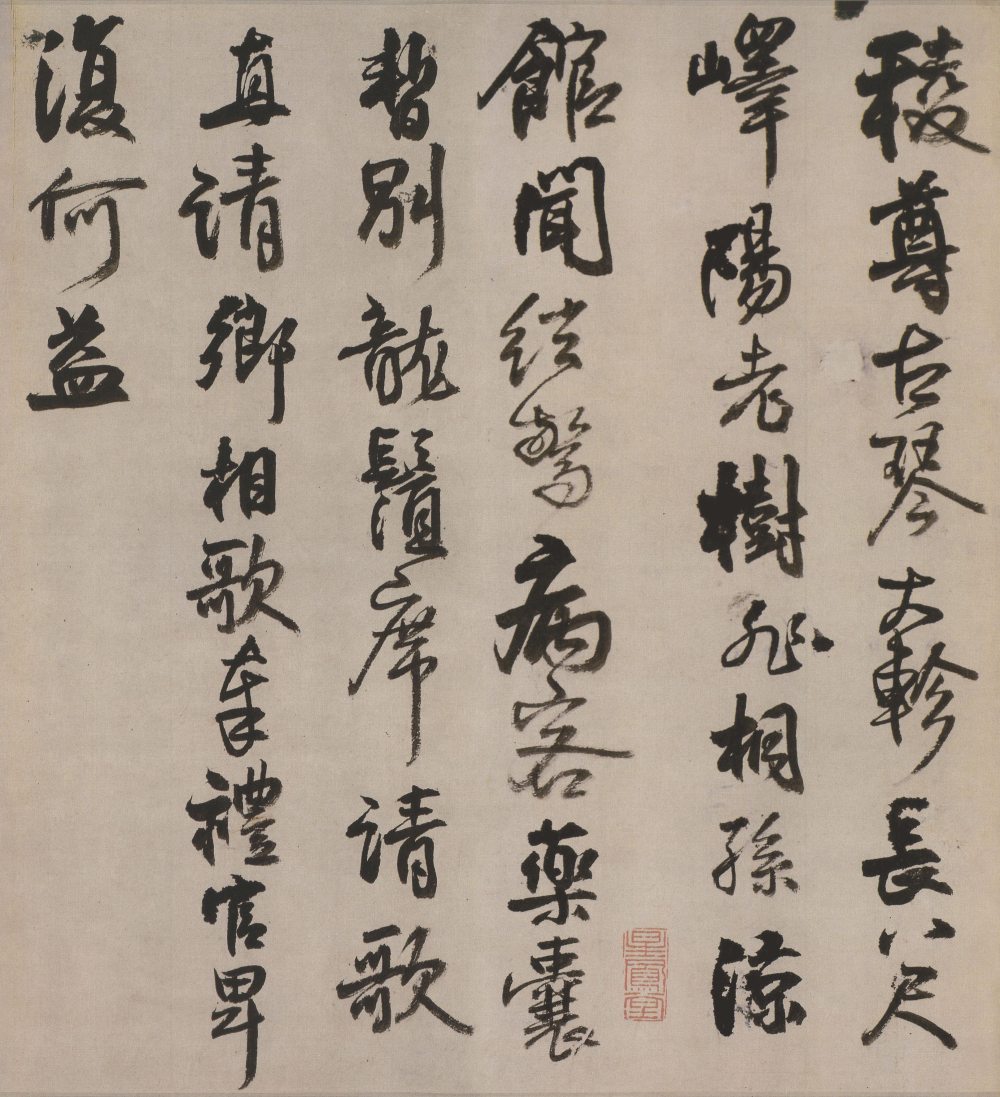 稜尊古琴大軫長八尺
嶧陽老樹非桐孫涼
館聞絃驚病客藥囊
暫別龍鬚席請歌
直請卿相歌奉禮官卑
復何益